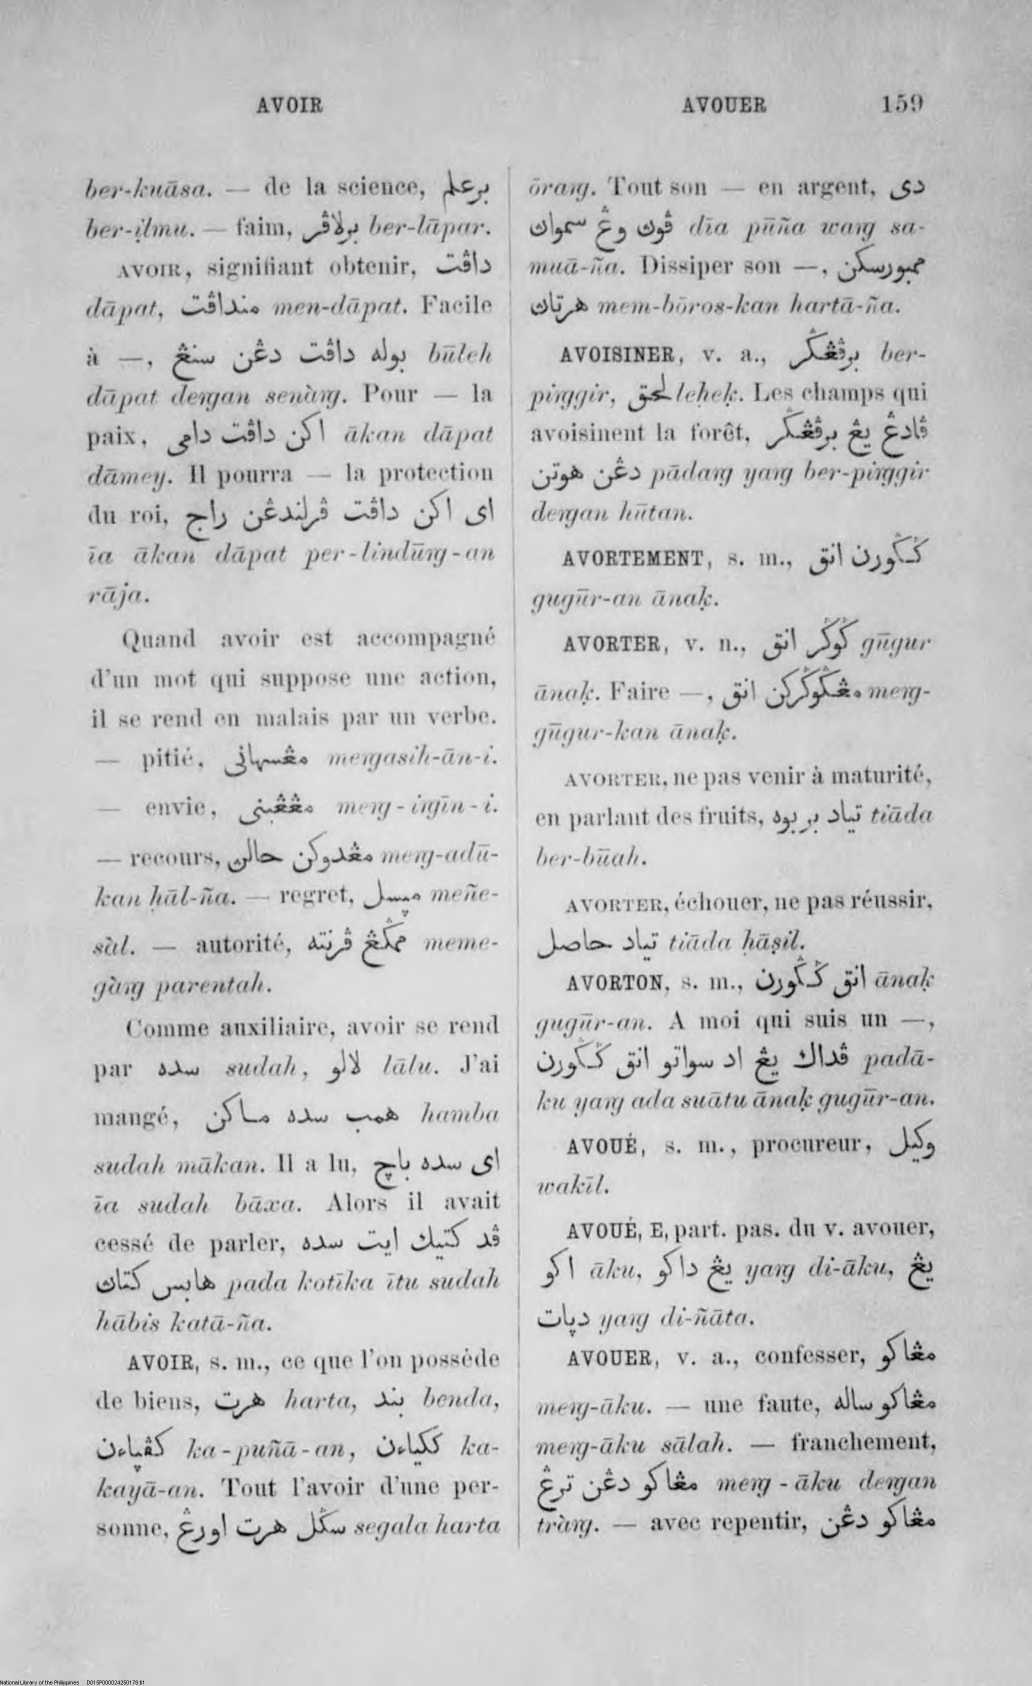 AVOIR
AVOUER 159
ber-kuāsa. — de la science, برعلم
ber-ịlmu. — faim, برلاڤر ber-lāpar.
AVOIR, signifiant obtenir, داڤت
dāpat, منداڤت men-dāpat. Facile
à —, بوله داڤت دڠن سنڠ būleh
dāpat deṛgan senàṛg. Pour — la
paix, اكن داڤت دامى ākan dāpat
dāmey. Il pourra — la protection
du roi, اى اكن داڤت ڤرلندڠن راج
īa ākan dāpat per-lindūṛg-an
rāja.
Quand avoir est accompagné
d'un mot qui suppose une action,
il se rend en malais par un verbe.
— pitié, مڠسهانى meṛgasih-ān-i.
— envie, مڠڠينى meṛg-iṛgīn-i.
— recours, مڠدوكن حالن meṛg-adū-
kan ḥāl-ña. — regret, ميسل meñe-
sàl. — autorité, ممݢڠ ڤرنته meme-
gàṛg parentah.
Comme auxiliaire, avoir se rend
par سده sudah, لالو lālu. J'ai
mangé, همب سده ماكن hamba
sudah mākan. Il a lu, اى سده باچ
īa sudah bāxa. Alors il avait
cessé de parler, ڤد كتيك ايت سده
هابس كتاڽ pada kotīka ītu sudah
hābis katā-ña.
AVOIR, s. m., ce que l'on possède
de biens, هرت harta, بند benda,
كڤياءن ka-puñā-an, ككياءن ka-
kayā-an. Tout l'avoir d'une per-
sonne, سݢل هرت اورڠ segala harta
ōraṛg. Tout son — en argent, دى
ڤوڽ وڠ سمواڽ dīa pūña waṛg sa-
muā-ña. Dissiper son —, ممبورسكن
هرتاڽ mem-bōros-kan hartā-ña.
AVOISINER, v. a., برڤڠݢر ber-
piṛggir, لحق leḥeḳ. Les champs qui
avoisinent la forêt, ڤادڠ يڠ برڤڠݢر
دڠن هوتن pādaṛg yaṛg ber-piṛggir
deṛgan hūtan.
AVORTEMENT, s. m., ݢݢورن انق
gugūr-an ānaḳ.
AVORTER, v. n., ݢوݢر انق gūgur
ānaḳ. Faire —, مڠݢوݢركن انق meṛg-
gūgur-kan ānaḳ.
AVORTER, ne pas venir à maturité,
en parlant des fruits, تياد بربوه tiāda
ber-būah.
AVORTER, échouer, ne pas réussir,
تياد حاصل tiāda ḥāṣil.
AVORTON, s. m., انق ݢݢورن ānaḳ
gugūr-an. A moi qui suis un —,
ڤداك يڠ اد سواتو انق ݢݢورن padā-
ku yaṛg ada suātu ānaḳ gugūr-an.
AVOUÉ, s. m., procureur, وكيل
wakīl.
AVOUÉ, E, part. pas. du v. avouer,
اكو āku, يڠ داكو yaṛg di-āku, يڠ
ديات yaṛg di-ñāta.
AVOUER, v. a., confesser, مڠاكو
meṛg-āku. — une faute, مڠاكو ساله
meṛg-āku sālah. — franchement,
مڠاكو دڠن ترڠ meṛg-āku deṛgan
tràṛg. — avec repentir, مڠاكو دڠن
National Library of the Philippines